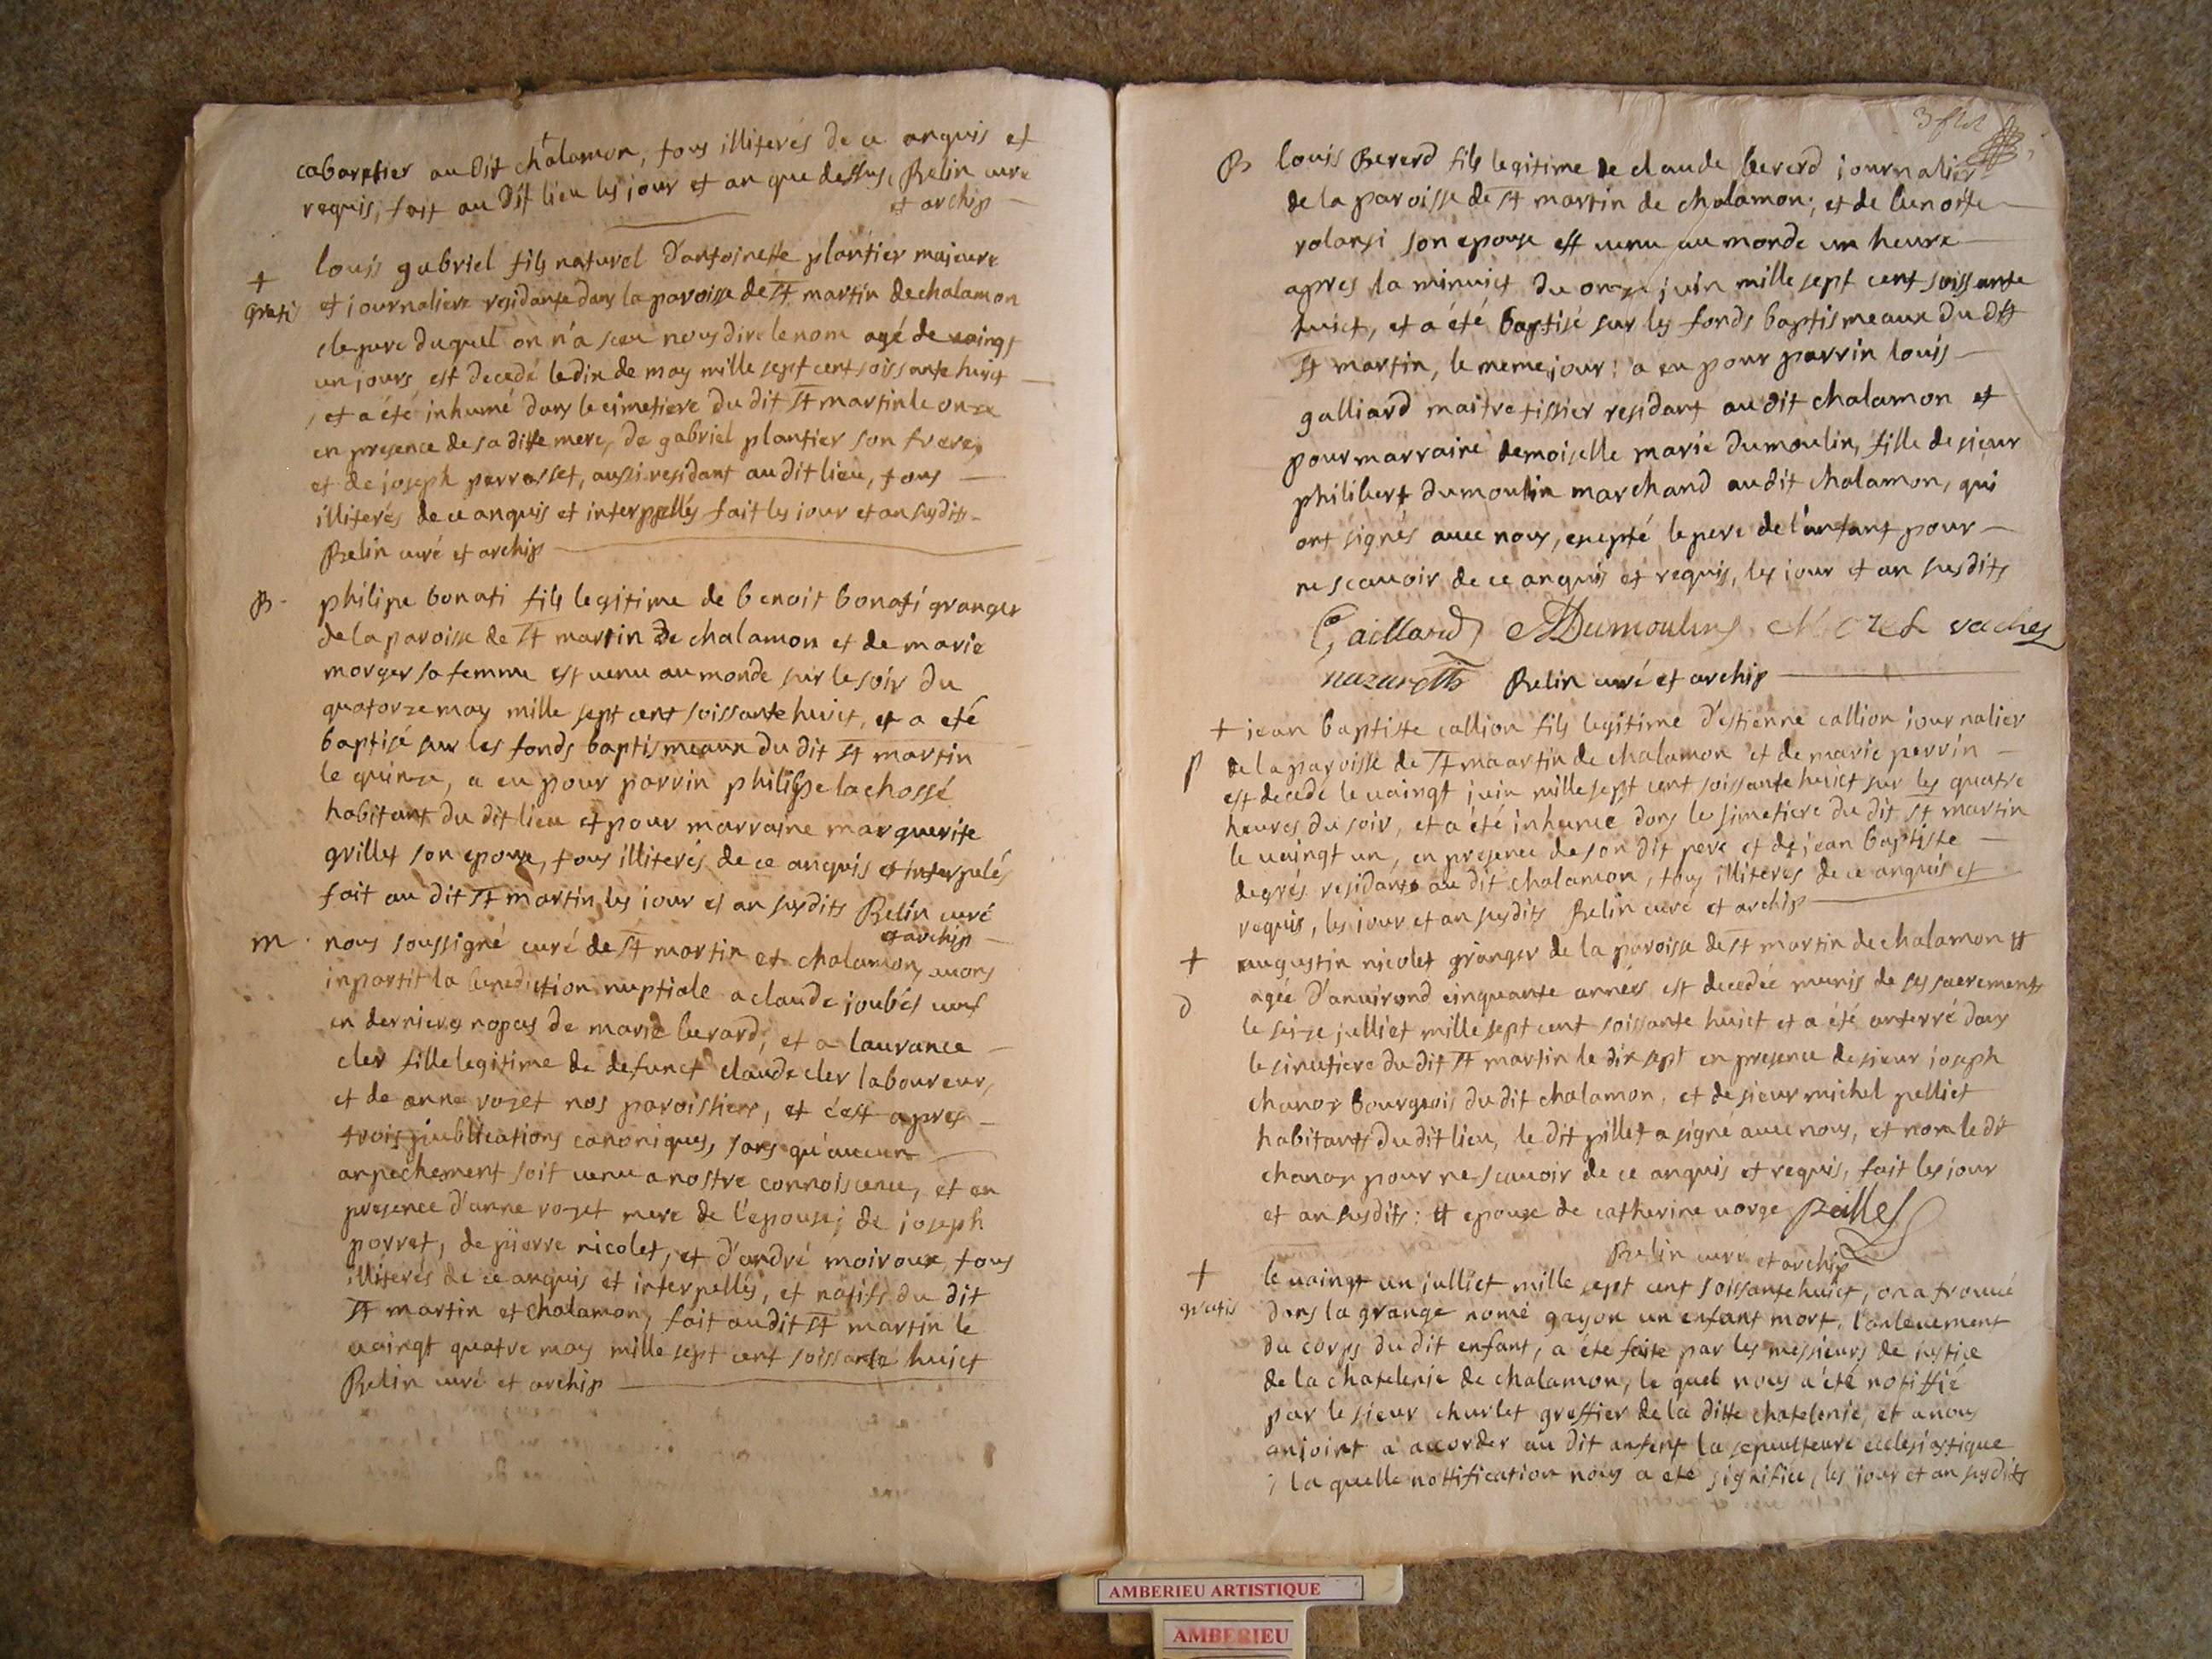 cabaretier au dit chalamon, tous illiterés de ce anquis et
requis, fait au dit lieu les jour et an que dessus, Relin curé
et archip
+
gratis
louis gabriel fils naturel d'antoinette plantier majeure
et journaliere residante dans la paroisse de St martin de chalamon
le pere duquel on n'a sceu nous dire le nom agé de vaingt
un jours est decedé le dix de may mille sept cent soissante huict
, et a été inhumé dans le cimetiere du dit St martin le onze
en presence de sa ditte mere, de gabriel plantier son frere,
et de joseph perrosset, aussi residant au dit lieu, tous
illiterés de ce anquis et interpellés fait les jour et an susdits
Relin curé et archip
B
philipe bonati fils legitime de benoit bonati granger
de la paroisse de St martin de chalamon et de marie
morger sa femme est venu au monde sur le soir du
quatorze may mille sept cent soissante huict, et a eté
baptisé sur les fonds baptismeaux du dit St martin
le quinze, a eu pour parrin philippe lachossé
habitant du dit lieu et pour marraine marguerite
grillet son epouze, tous illiterés de ce anquis et interpelés
fait au dit St martin les jour et an susdits Relin curé
et archip
m
nous soussigné curé de St martin et chalamon, avons
inpartit la benediction nuptiale a claude joubés veuf
en dernieres nopces de marie berard, et a laurance
cler fille legitime de defunct claude cler laboureur,
et de anne rozet nos paroissiens, et c'est apres
trois publications canoniques, sans qu'aucun
anpechement soit venu a nostre connoiscence, et en
presence d'anne rozet mere de l'epouse; de joseph
porret, de pierre nicolet, et d'andré moiroux tous
illiterés de ce anquis et interpellés, et natifs du dit
St martin et chalamon, fait au dit St martin le
vaingt quatre may mille sept cent soissante huict
Relin curé et archip
B
louis Bererd fils legitime de claude bererd journalier
de la paroisse de St martin de chalamon; et de benoitte
rolansi son epouse est venu au monde un heure
apres la minuict du onze juin mille sept cent soissante
huict, et a été baptisé sur les fonds baptismeaux du dit
St martin, le meme jour: a eu pour parrin louis
galliard maitre tissier residant au dit chalamon et
pour marraine demoiselle marie dumoulin, fille de sieur
philibert dumoulin marchand au dit chalamon, qui
ont signés avec nous, exepté le pere de l'anfant pour
ne scavoir de ce anquis et requis, les jour et an susdits
Gaillard MDumoulins vaches
nazareth Relin curé et archip
+
p
jean baptiste callion fils legitime d'estienne callion journalier
de la paroisse de St maartin de chalamon et de marie perrin
est decede le vaingt juin mille sept cent soissante huict sur les quatre
heures du soir, et a été inhumé dans le simetiere du dit St martin
le vaingt un, en presence de son dit pere et de jean baptiste
degrés residants au dit chalamon, tous illiteres de ce anquis et
requis, les jour et an susdits Relin curé et archip
+
d
augustin nicolet granger de la paroisse de St martin de chalamon #
agée d'anvirond cinquante années est decedée munis de ses sacrements
le seize julliet mille sept cent soissante huict et a été anterré dans
le simetiere du dit St martin le dix sept en presence de sieur joseph
chanay bourgeois du dit chalamon, et de sieur michel pelliet
habitants du dit lieu, le dit pillet a signé avec nous, et non le dit
chanay pour ne scavoir de ce anquis et requis, fait les jour
et an susdits: # epoux de catherine vorge Pillet
Relin curé et archip
+
gratis
le vaingt un julliet mille sept cent soissante huict, on a trouvé
dans la grange nomé gayon un enfant mort, l'anlevement
du corps du dit enfant, a été faite par les messieurs de justice
de la chatelenie de chalamon, le quel nous a été notiffié
par le sieur churlet greffier de la ditte chatelenie, et a nous
anjoint a accorder au dit anfent la sepulteure ecclesiastique
; la quelle nottification nous a eté signifiée, les jour et an susdits
AMBERIEU ARTISTIQUE
AMBERIEU